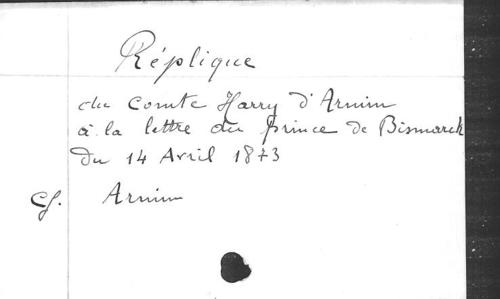 Réplique
du Comte Harry d'Arnim
à la lettre du prince de Bismarck
du 14 Avril 1873
Cf. Arnim